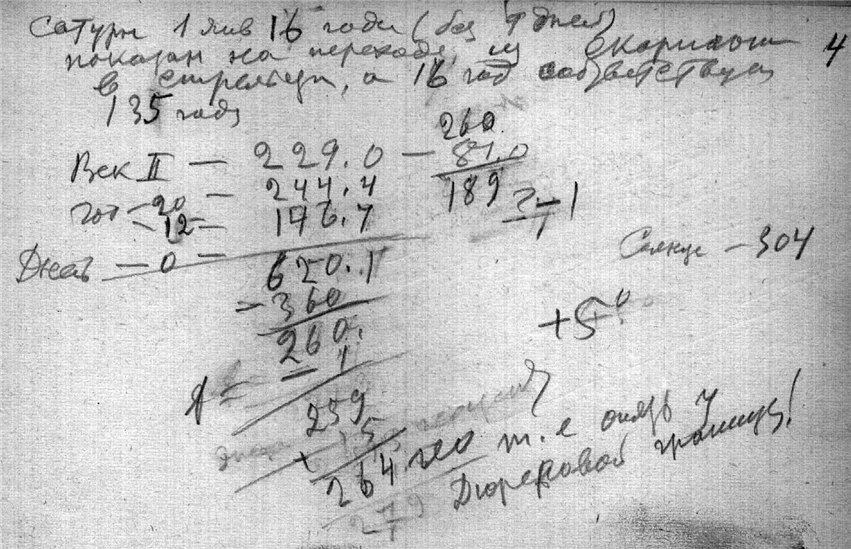 Сатурн 1 янв 16 года (без 9 дней)
показан на переходе из Скорпиона 4
в стрельца, а 16 год соответствует
135 году
260
Век II — 229.0 — 81.0
год —20 — 244.4 189
—12— 176.7 — 1
Джаб — 0 — 620.1 Солнце — 304
— 360 +5°
260.
— 1
259
+ 5
264. что т. е опять у
Дюреровой границы!